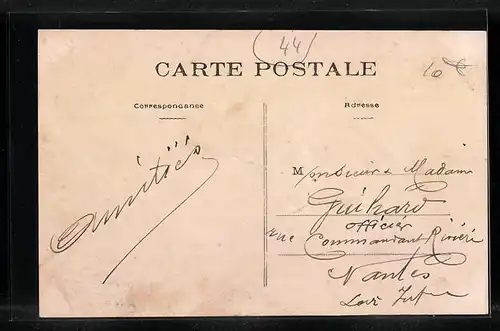 (44)
CARTE POSTALE
10 €
Correspondance
Adresse
Amitiés
Monsieur & Madame
Guihard
officier
rue Commandant Rivière
Nantes
Loire Infre